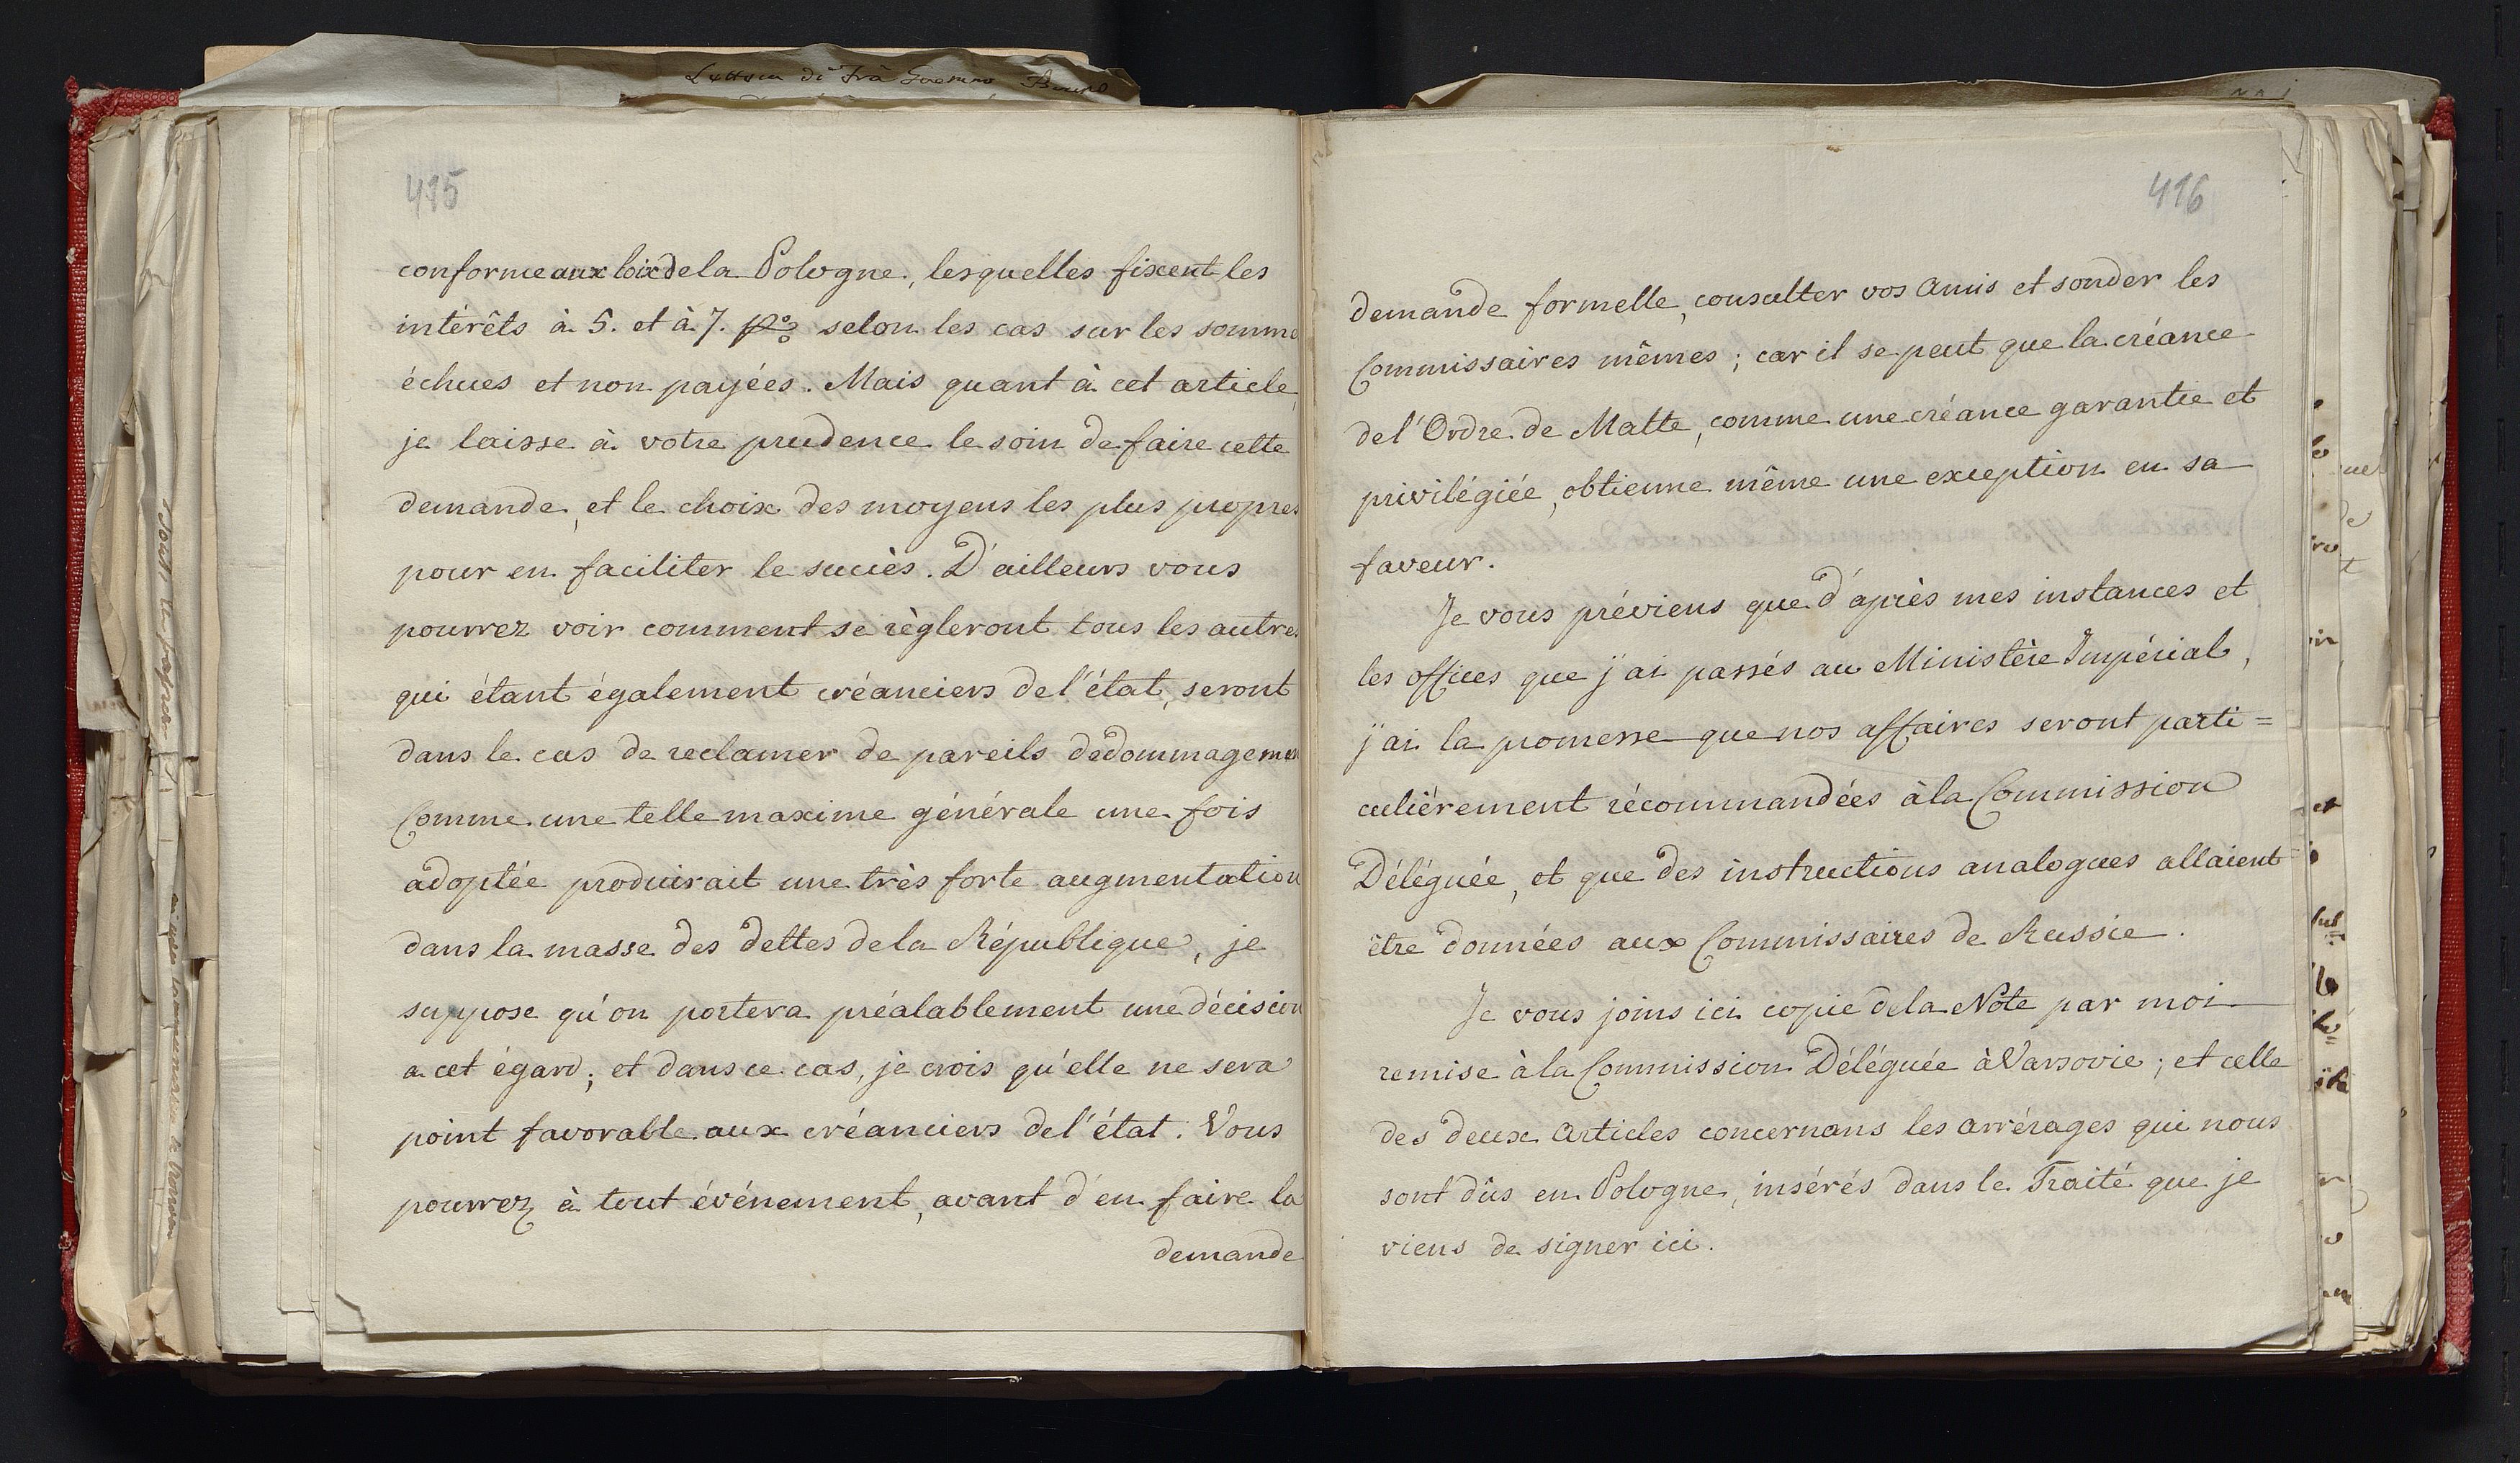 415
conforme aux loix de la Pologne, lesquelles fixent les
intérêts à 5. et à 7. p% selon les cas sur les somme
échues et non payées. Mais quant à cet article,
je laisse à votre prudence le soin de faire cette
demande, et le choix des moyens les plus propres
pour en faciliter le succès. D'ailleurs vous
pourrez voir comment se règleront tous les autres
qui étant également créanciers de l'état, seront
dans le cas de reclamer de pareils dédommagemen
Comme une telle maxime générale une fois
adoptée produirait une très forte augmentation
dans la masse des dettes de la République, je
suppose qu'on portera préalablement une décision
a cet égard; et dans ce cas, je crois qu'elle ne sera
point favorable aux créanciers de l'état. Vous
pourrez à tout événement, avant d'en faire la
demande
416
demande formelle, consulter vos Amis et sonder les
Commissaires mêmes; car il se peut que la créance
de l'Ordre de Malte, comme une créance garantie et
privilégiée, obtienne même une exception en sa
faveur.
Je vous préviens que d'après mes instances et
les offices que j'ai passés au Ministère Impérial,
j'ai la promesse que nos affaires seront parti=
culièrement récommandées à la Commission
Déléguée, et que des instructions analogues allaient
être données aux Commissaires de Russie.
Je vous joins ici copie de la Note par moi
remise à la Commission Déléguée à Varsovie; et celle
des deux Articles concernans les Arrérages qui nous
sont dûs en Pologne, insérés dans le Traité que je
viens de signer ici.